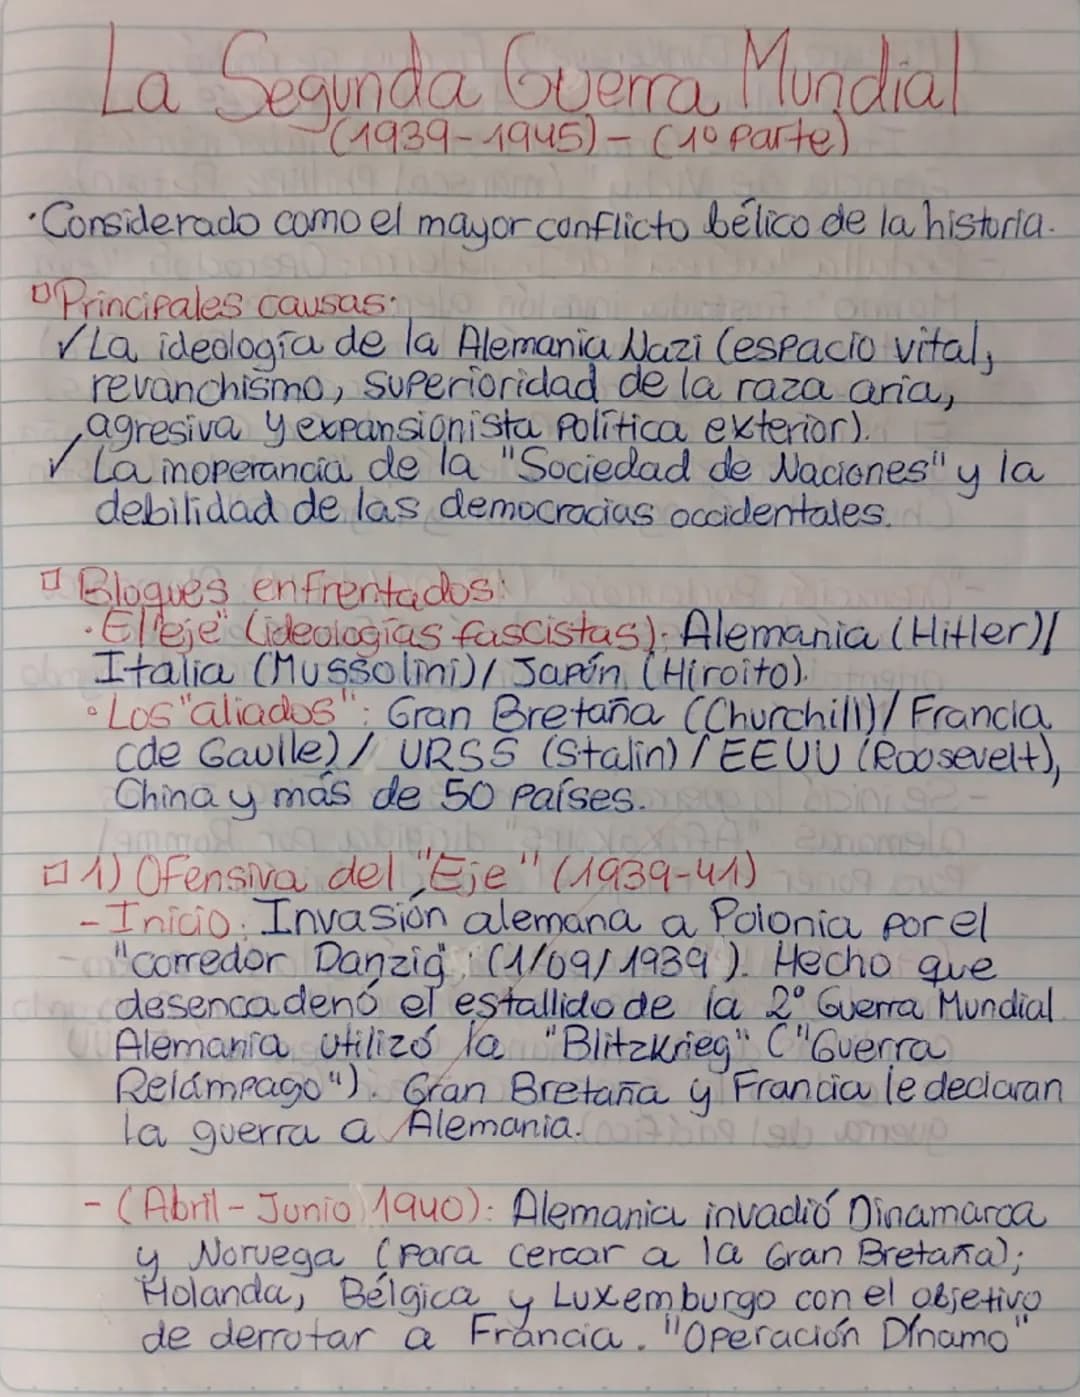 La Segunda Guerra Mundial
(1939-1945) - (1º Parte)
·Considerado como el mayor conflicto bélico de la historia.
Principales causas:
✓ La ideología de la Alemania Nazi (espacio vital,
revanchismo, superioridad de la raza aria,
agresiva y expansionista Política exterior).
✓ La inoperancia de la "Sociedad de Naciones" y la
debilidad de las democracias occidentales.
Bloques enfrentados:
·El "eje" (ideologías fascistas): Alemania (Hitler)/
Italia (Mussolini)/ Japón (Hiroito).
·Los "aliados": Gran Bretaña (Churchill)/ Francia
(de Gaulle)/ URSS (Stalin)/ EEUU (Roosevelt),
China y más de 50 países.
1) Ofensiva del "Eje" (1939-41)
-Inicio: Invasión alemana a Polonia por el
"corredor Danzig": (1/09/1939). Hecho que
desencadenó el estallido de la 2º Guerra Mundial
Alemania utilizó la "Blitzkrieg" ("Guerra
Relámpago"). Gran Bretaña y Francia le declaran
la guerra a Alemania.
- (Abril - Junio 1940): Alemania invadió Dinamarca
y Noruega (para cercar a la Gran Bretaña);
Holanda, Bélgica y Luxemburgo con el objetivo
de derrotar a Francia. "Operación Dínamo"